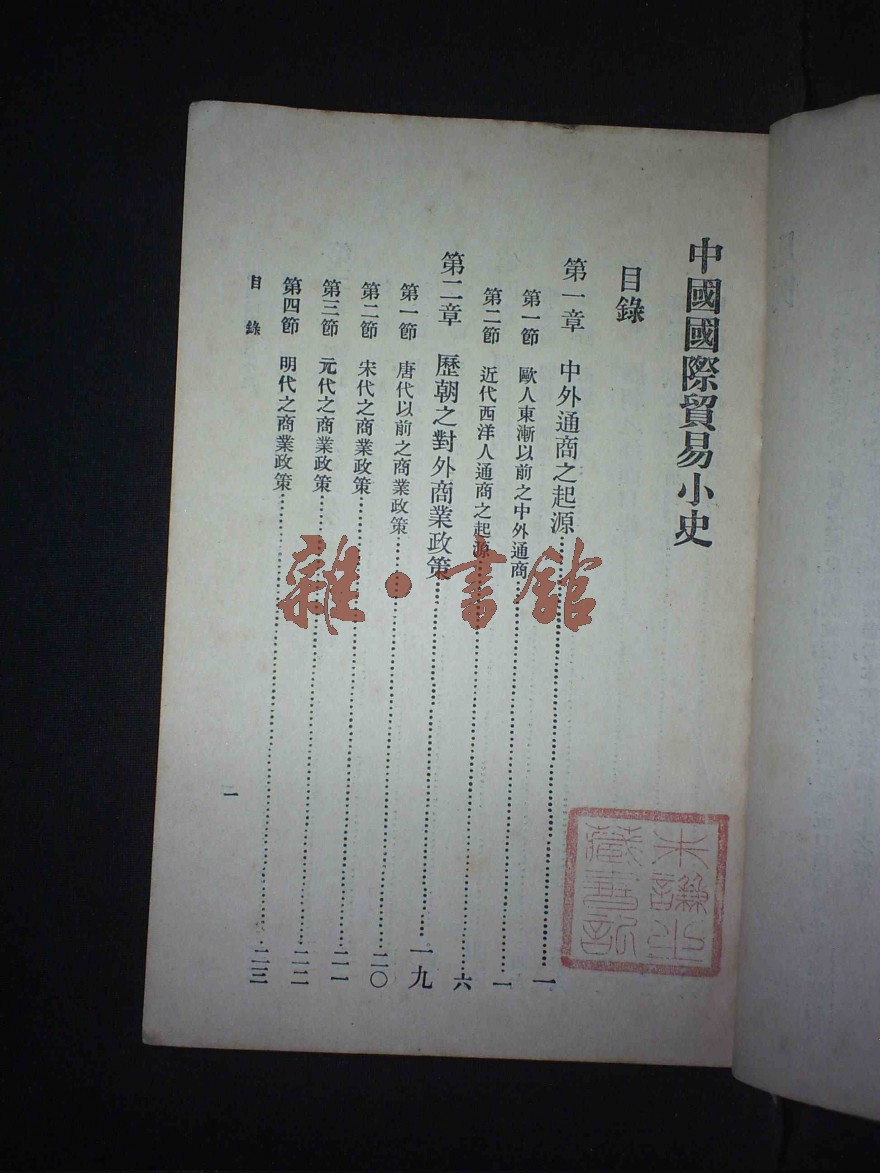 中國國際貿易小史
目錄
第一章 中外通商之起源……一
第一節 歐人東漸以前之中外通商……一
第二節 近代西洋人通商之起源……六
第二章 歷朝之對外商業政策……一九
第一節 唐代以前之商業政策……二〇
第二節 宋代之商業政策……二一
第三節 元代之商業政策……二二
第四節 明代之商業政策……二三
目錄 一
朱謙之
藏書
雜·書館